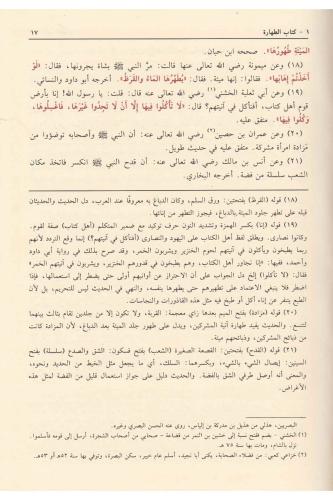 ١ - كتاب الطهارة ١٧
المَيْتَةِ طُهُورُهَا». صححه ابن حبان.
(١٨) وعن ميمونة رضي الله تعالى عنها قالت: مرَّ النبي ﷺ بشاة يجرونها، فقال: «لَوْ
أَخَذْتُمْ إِهَابَهَا». فقالوا: إنها ميتة. فقال: «يُطَهِّرُهَا المَاءُ وَالقَرَظُ». أخرجه أبو داود والنسائي.
(١٩) وعن أبي ثعلبة الخشني(١) رضي الله تعالى عنه قال: قلت: يا رسول الله! إنا بأرض
قوم أهل كتاب، أفنأكل في آنيتهم؟ قال: «لَا تَأْكُلُوا فِيهَا إِلَّا أَنْ لَا تَجِدُوا غَيْرَهَا، فَاغْسِلُوهَا،
وَكُلُوا فِيهَا». متفق عليه.
(٢٠) وعن عمران بن حصين(٢) رضي الله تعالى عنه: أن النبي ﷺ وأصحابه توضؤوا من
مزادة امرأة مشركة. متفق عليه في حديث طويل.
(٢١) وعن أنس بن مالك رضي الله تعالى عنه: أن قدح النبي ﷺ انكسر فاتخذ مكان
الشعب سلسلة من فضة. أخرجه البخاري.
(١٨) قوله (القرظ) بفتحتين: ورق السلم، وكان الدباغ به معروفًا عند العرب، دل الحديث والحديثان
قبله على تطهر جلود الميتة بالدباغ، فيجوز التطهر من إنائها.
(١٩) قوله (إنا) بكسر الهمزة وتشديد النون حرف توكيد مع ضمير المتكلم (أهل كتاب) صفة لقوم.
وكانوا نصارى. ويطلق لفظ أهل الكتاب على اليهود والنصارى (أفنأكل في آنيتهم؟) إنما وقع التردد لأنهم
ربما يطبخون ويأكلون في آنيتهم لحوم الخنزير ويشربون الخمر، وقد صرح بذلك في رواية أبي داود
وأحمد، ففيها: «إنا نجاور أهل الكتاب، وهم يطبخون في قدورهم الخنزير، ويشربون في آنيتهم الخمر،
فقال: (لا تأكلوا) إلخ دل الجواب على أن الاحتراز عن أوانيهم أولى حتى يضطر إلى استعمالها، فإذا
اضطر فلا ينبغي الاعتماد على تطهيرهم حتى يطهرها بنفسه، والنهي في الحديث ليس للتحريم، بل لأن
الطبع يتنفر عن إناء أكل أو طبخ فيه مثل هذه القاذورات والنجاسات.
(٢٠) قوله (مزادة) بفتح الميم بعدها زاي معجمة: القربة، ولا تكون إلا من جلدين تقام بثالث بينهما
لتتسع. والحديث يفيد طهارة آنية المشركين، ويدل على طهور جلد الميتة بعد الدباغ، لأن المزادة كانت
من ذبائح المشركين، وذبائحهم ميتة.
(٢١) قوله (القدح) بفتحتين: القصعة الصغيرة (الشعب) بفتح فسكون: الشق والصدع (سلسلة) بفتح
السينين: إيصال الشيء بالشيء، وبكسرهما: السلك، أي ما يجعل مثل الخيط من الحديد ونحوه،
والمعنى أنه أوصل طرفي الشق بالفضة. والحديث دليل على جواز استعمال قليل من الفضة لمثل هذه
الأغراض.
البصريين، هذلي من هذيل بن مدركة بن إلياس، روى عنه الحسن البصري وغيره.
(١) الخشني - بضم ففتح نسبة إلى خشين بن النمر من قضاعة - صحابي من أصحاب الشجرة، أرسل إلى قومه فأسلموا.
نزل بالشام، ومات بها سنة ٧٥هـ.
(٢) خزاعي كعبي: من فضلاء الصحابة، يكنى أبا نجيد، أسلم عام خيبر، سكن البصرة، وتوفي بها سنة ٥٢هـ أو ٥٣هـ.